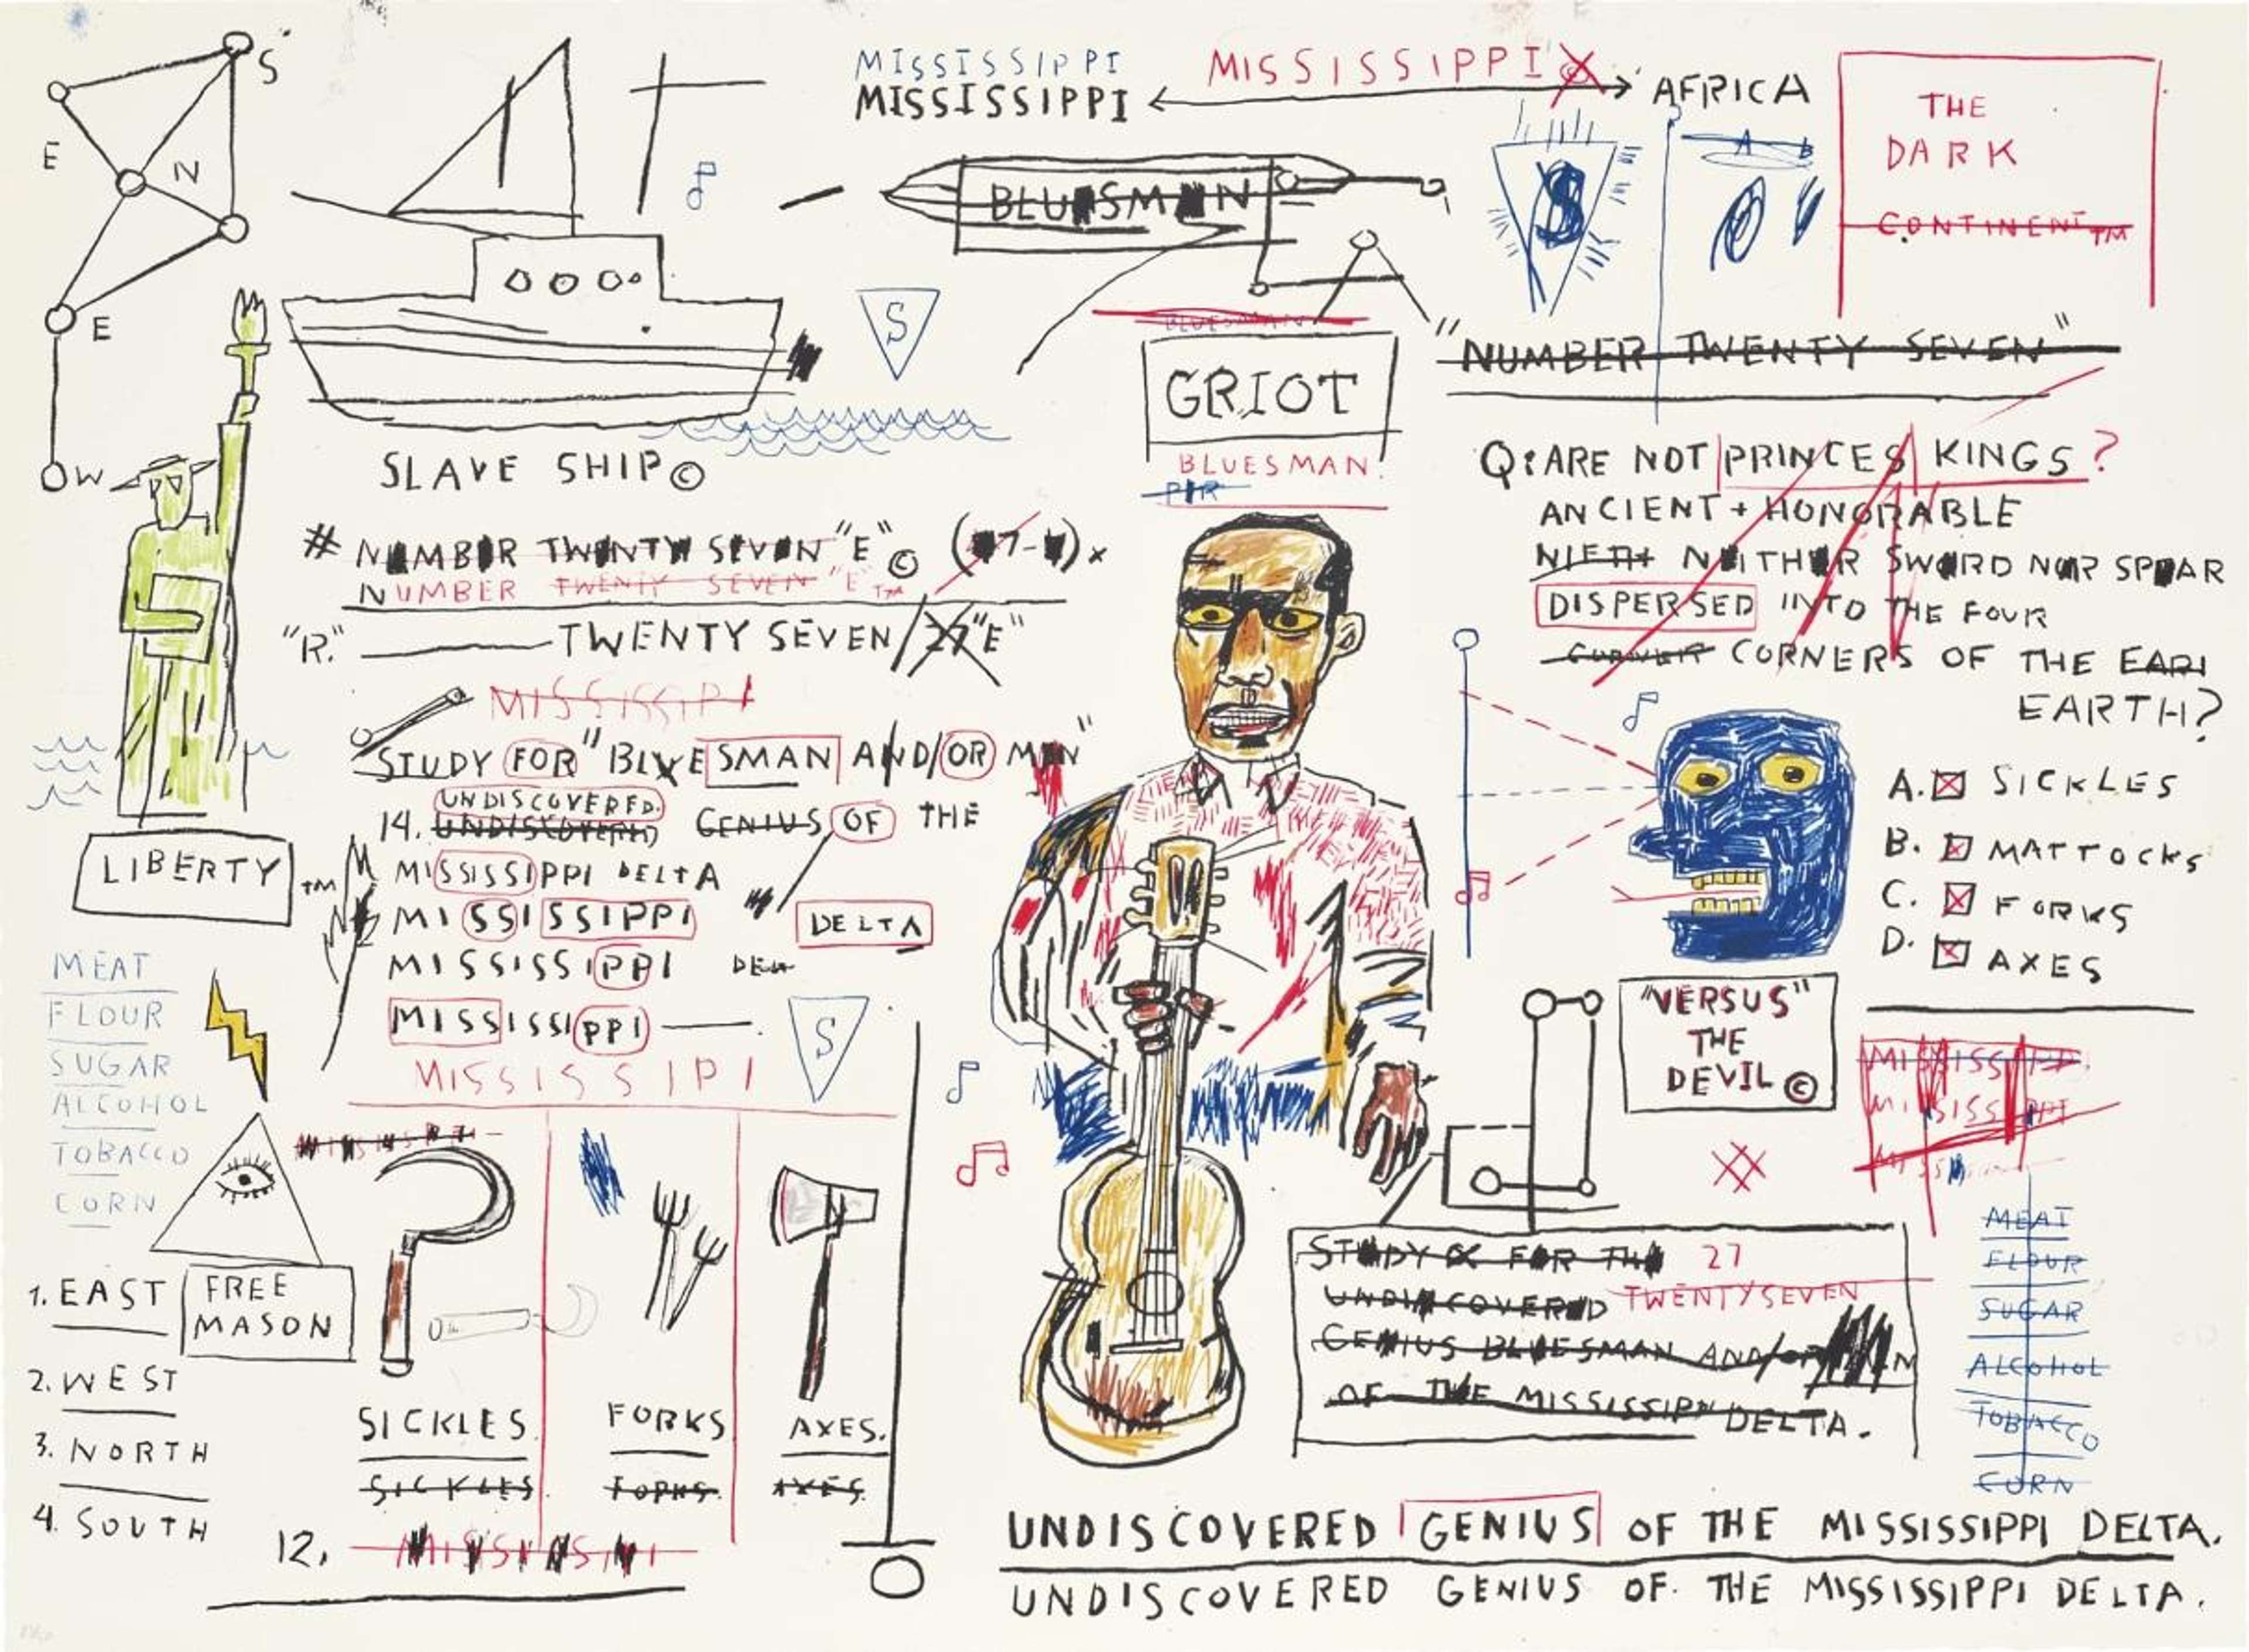 S
E
N
E
W
MISSISSIPPI
MISSISSIPPI
MISSISSIPPI©
AFRICA
THE
DARK
CONTINENT™
A B
S
BLUESMAN
S
BLUESMAN
GRIOT
BLUESMAN.
"NUMBER TWENTY SEVEN"
SLAVE SHIP©
# NUMBER TWENTY SEVEN "E"©
NUMBER TWENTY SEVEN "E"™
"R." TWENTY SEVEN/27"E"
Q: ARE NOT PRINCES KINGS?
ANCIENT + HONORABLE
NIETH NEITHER SWORD NOR SPEAR
DISPERSED INTO THE FOUR
CORNERS OF THE EAR
EARTH?
A. SICKLES
B. MATTOCKS
C. FORKS
D. AXES
MISSISSIPI
STUDY FOR "BLUESMAN AND/OR MEN"
UNDISCOVERED.
14. UNDISCOVERED GENIUS OF THE
MISSISSIPPI DELTA
MISSISSIPPI DELTA
MISSISSIPPI DELT
MISSISSIPPI
MISSISSIPI
S
LIBERTY™
MEAT
FLOUR
SUGAR
ALCOHOL
TOBACCO
CORN
FREE
MASON
1. EAST
2. WEST
3. NORTH
4. SOUTH
SICKLES.
SICKLES
FORKS
FORKS.
AXES.
AXES.
12.
"VERSUS"
THE
DEVIL©
MISSISSIPP
MISSISSIPPI
STUDY FOR THE 27
UNDISCOVERED TWENTYSEVEN
GENIUS BLUESMAN AND/OR
OF THE MISSISSIPPI DELTA.
MEAT
FLOUR
SUGAR
ALCOHOL
TOBACCO
CORN
UNDISCOVERED GENIUS OF THE MISSISSIPPI DELTA.
UNDISCOVERED GENIUS OF. THE MISSISSIPPI DELTA.